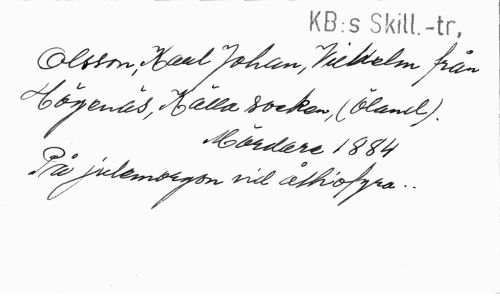 KB:s Skill.-tr.
Olsson, Karl Johan, Vilhelm från
Högenäs, Källa socken, (Öland).
Mördare 1884
På julemorgon vid åtta ofyra..